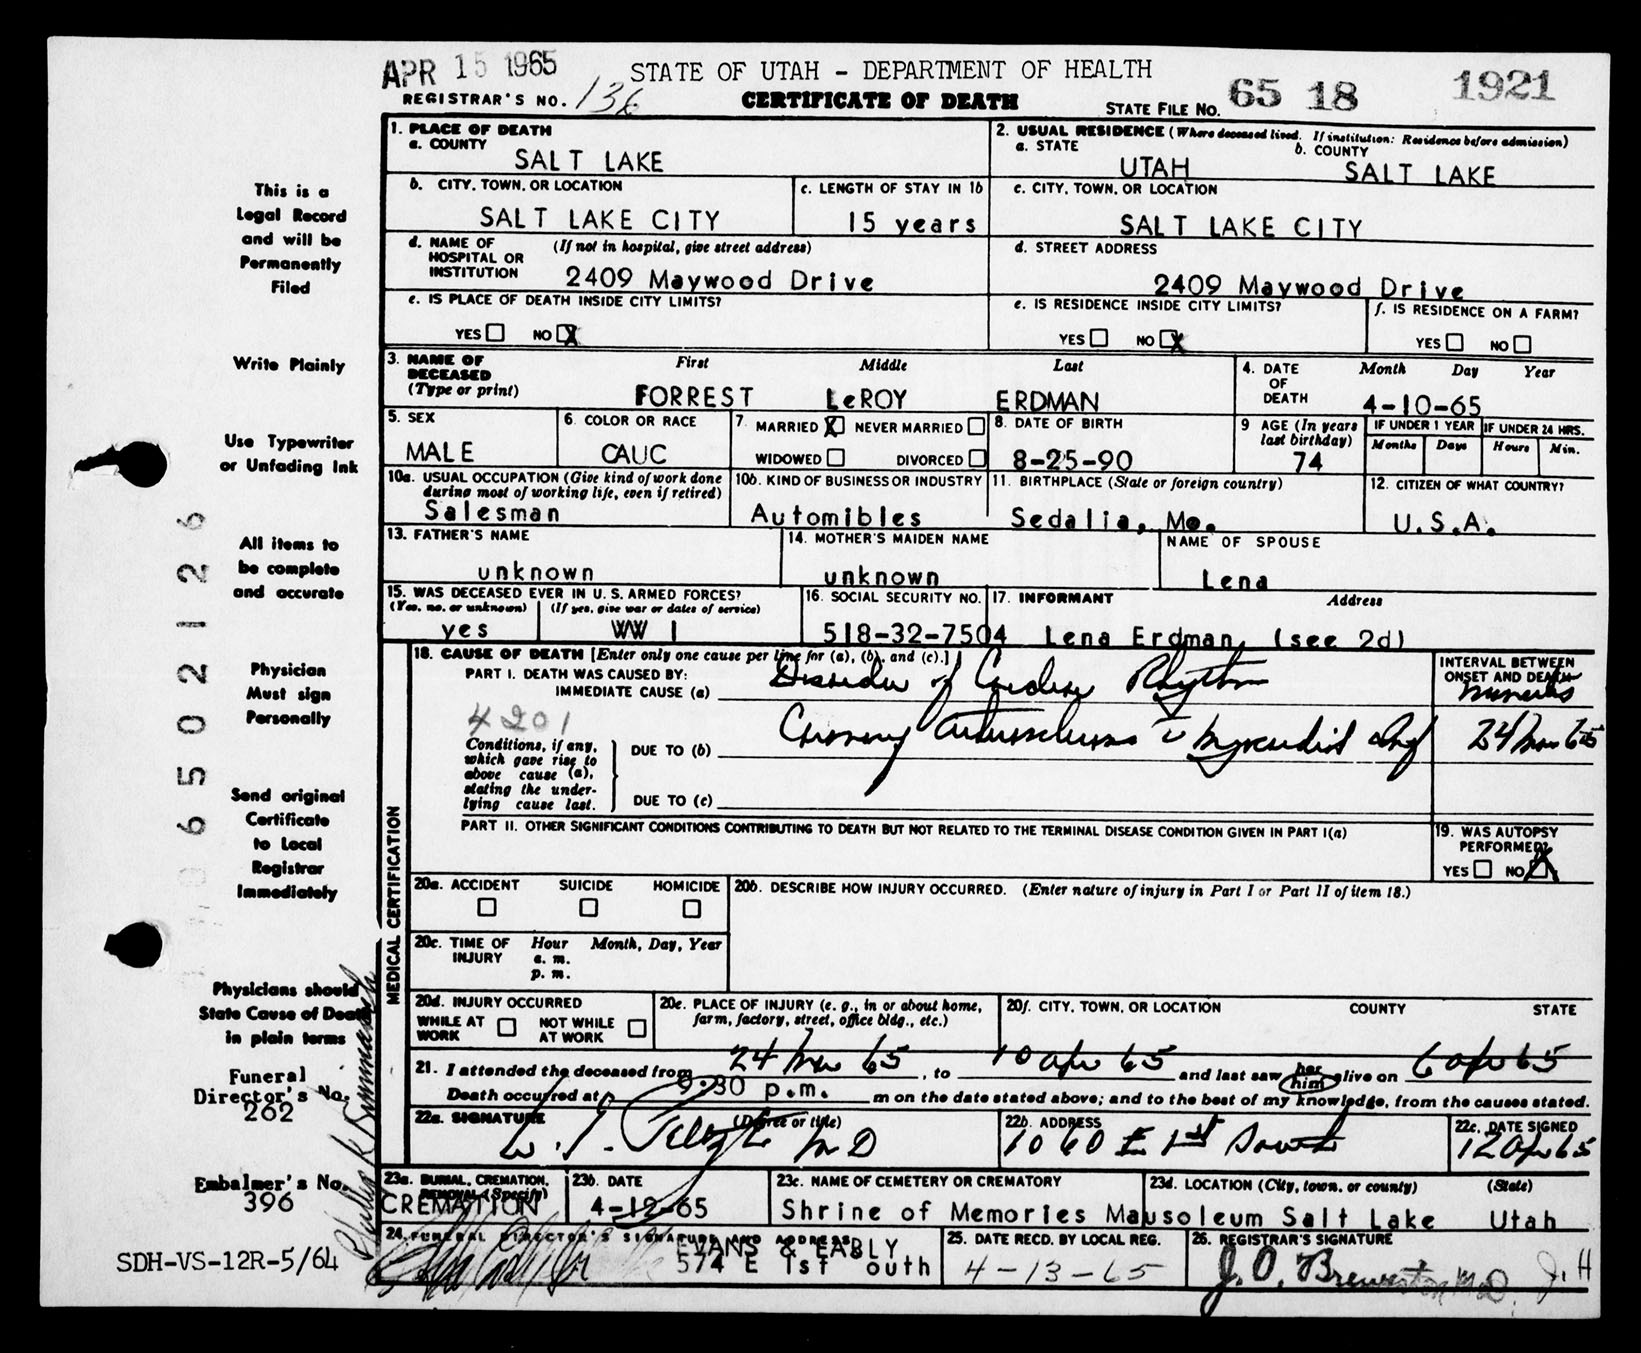 APR 15 1965
STATE OF UTAH - DEPARTMENT OF HEALTH
REGISTRAR'S NO. 136
CERTIFICATE OF DEATH
STATE FILE NO. 65 18 1921
This is a
Legal Record
and will be
Permanently
Filed
Write Plainly
Use Typewriter
or Unfading Ink
All items to
be complete
and accurate
Physician
Must sign
Personally
Send original
Certificate
to Local
Registrar
Immediately
Physicians should
State Cause of Death
in plain terms
Funeral
Director's No.
262
Embalmer's No.
396
SDH-VS-12R-5/64
65021226
1. PLACE OF DEATH
a. COUNTY
SALT LAKE
2. USUAL RESIDENCE (Where deceased lived. If institution: Residence before admission)
a. STATE
UTAH
b. COUNTY
SALT LAKE
b. CITY, TOWN, OR LOCATION
SALT LAKE CITY
c. LENGTH OF STAY IN 1b
15 years
c. CITY, TOWN, OR LOCATION
SALT LAKE CITY
d. NAME OF HOSPITAL OR INSTITUTION
(If not in hospital, give street address)
2409 Maywood Drive
d. STREET ADDRESS
2409 Maywood Drive
e. IS PLACE OF DEATH INSIDE CITY LIMITS?
YES NO X
e. IS RESIDENCE INSIDE CITY LIMITS?
YES NO X
f. IS RESIDENCE ON A FARM?
YES NO
3. NAME OF DECEASED (Type or print)
First Middle Last
FORREST LeROY ERDMAN
4. DATE OF DEATH
Month Day Year
4-10-65
5. SEX
MALE
6. COLOR OR RACE
CAUC
7. MARRIED X NEVER MARRIED
WIDOWED DIVORCED
8. DATE OF BIRTH
8-25-90
9 AGE (In years last birthday)
74
IF UNDER 1 YEAR
Months Days
IF UNDER 24 HRS.
Hours Min.
10a. USUAL OCCUPATION (Give kind of work done during most of working life, even if retired)
Salesman
10b. KIND OF BUSINESS OR INDUSTRY
Automibles
11. BIRTHPLACE (State or foreign country)
Sedalia, Mo.
12. CITIZEN OF WHAT COUNTRY?
U.S.A.
13. FATHER'S NAME
unknown
14. MOTHER'S MAIDEN NAME
unknown
NAME OF SPOUSE
Lena
15. WAS DECEASED EVER IN U. S. ARMED FORCES?
(Yes, no, or unknown) (If yes, give war or dates of service)
yes WW I
16. SOCIAL SECURITY NO.
518-32-7504
17. INFORMANT Address
Lena Erdman, (see 2d)
MEDICAL CERTIFICATION
18. CAUSE OF DEATH [Enter only one cause per line for (a), (b), and (c).]
INTERVAL BETWEEN ONSET AND DEATH
PART I. DEATH WAS CAUSED BY:
IMMEDIATE CAUSE (a) Disorder of Cardiac Rhythm minutes
4201
Conditions, if any, which gave rise to above cause (a), stating the underlying cause last.
DUE TO (b) Coronary Arteriosclerosis c̄ myocardial Inf 24 Mar 65
DUE TO (c)
PART II. OTHER SIGNIFICANT CONDITIONS CONTRIBUTING TO DEATH BUT NOT RELATED TO THE TERMINAL DISEASE CONDITION GIVEN IN PART I(a)
19. WAS AUTOPSY PERFORMED?
YES NO X
20a. ACCIDENT SUICIDE HOMICIDE
20b. DESCRIBE HOW INJURY OCCURRED. (Enter nature of injury in Part I or Part II of item 18.)
20c. TIME OF INJURY
Hour Month, Day, Year
a. m.
p. m.
20d. INJURY OCCURRED
WHILE AT WORK NOT WHILE AT WORK
20e. PLACE OF INJURY (e. g., in or about home, farm, factory, street, office bldg., etc.)
20f. CITY, TOWN, OR LOCATION COUNTY STATE
21. I attended the deceased from 24 Mar 65, to 10 Apr 65 and last saw her him alive on 6 Apr 65
Death occurred at 9:30 p.m. m on the date stated above; and to the best of my knowledge, from the causes stated.
22a. SIGNATURE (Degree or title)
MD
22b. ADDRESS
1060 E 1st South
22c. DATE SIGNED
12 Apr 65
23a. BURIAL, CREMATION, REMOVAL (Specify)
CREMATION
23b. DATE
4-12-65
23c. NAME OF CEMETERY OR CREMATORY
Shrine of Memories Mausoleum
23d. LOCATION (City, town, or county) (State)
Salt Lake Utah
24. FUNERAL DIRECTOR'S SIGNATURE AND ADDRESS
EVANS & EARLY
574 E 1st outh
25. DATE RECD. BY LOCAL REG.
4-13-65
26. REGISTRAR'S SIGNATURE
J. O. Brewerton M.D. J. H